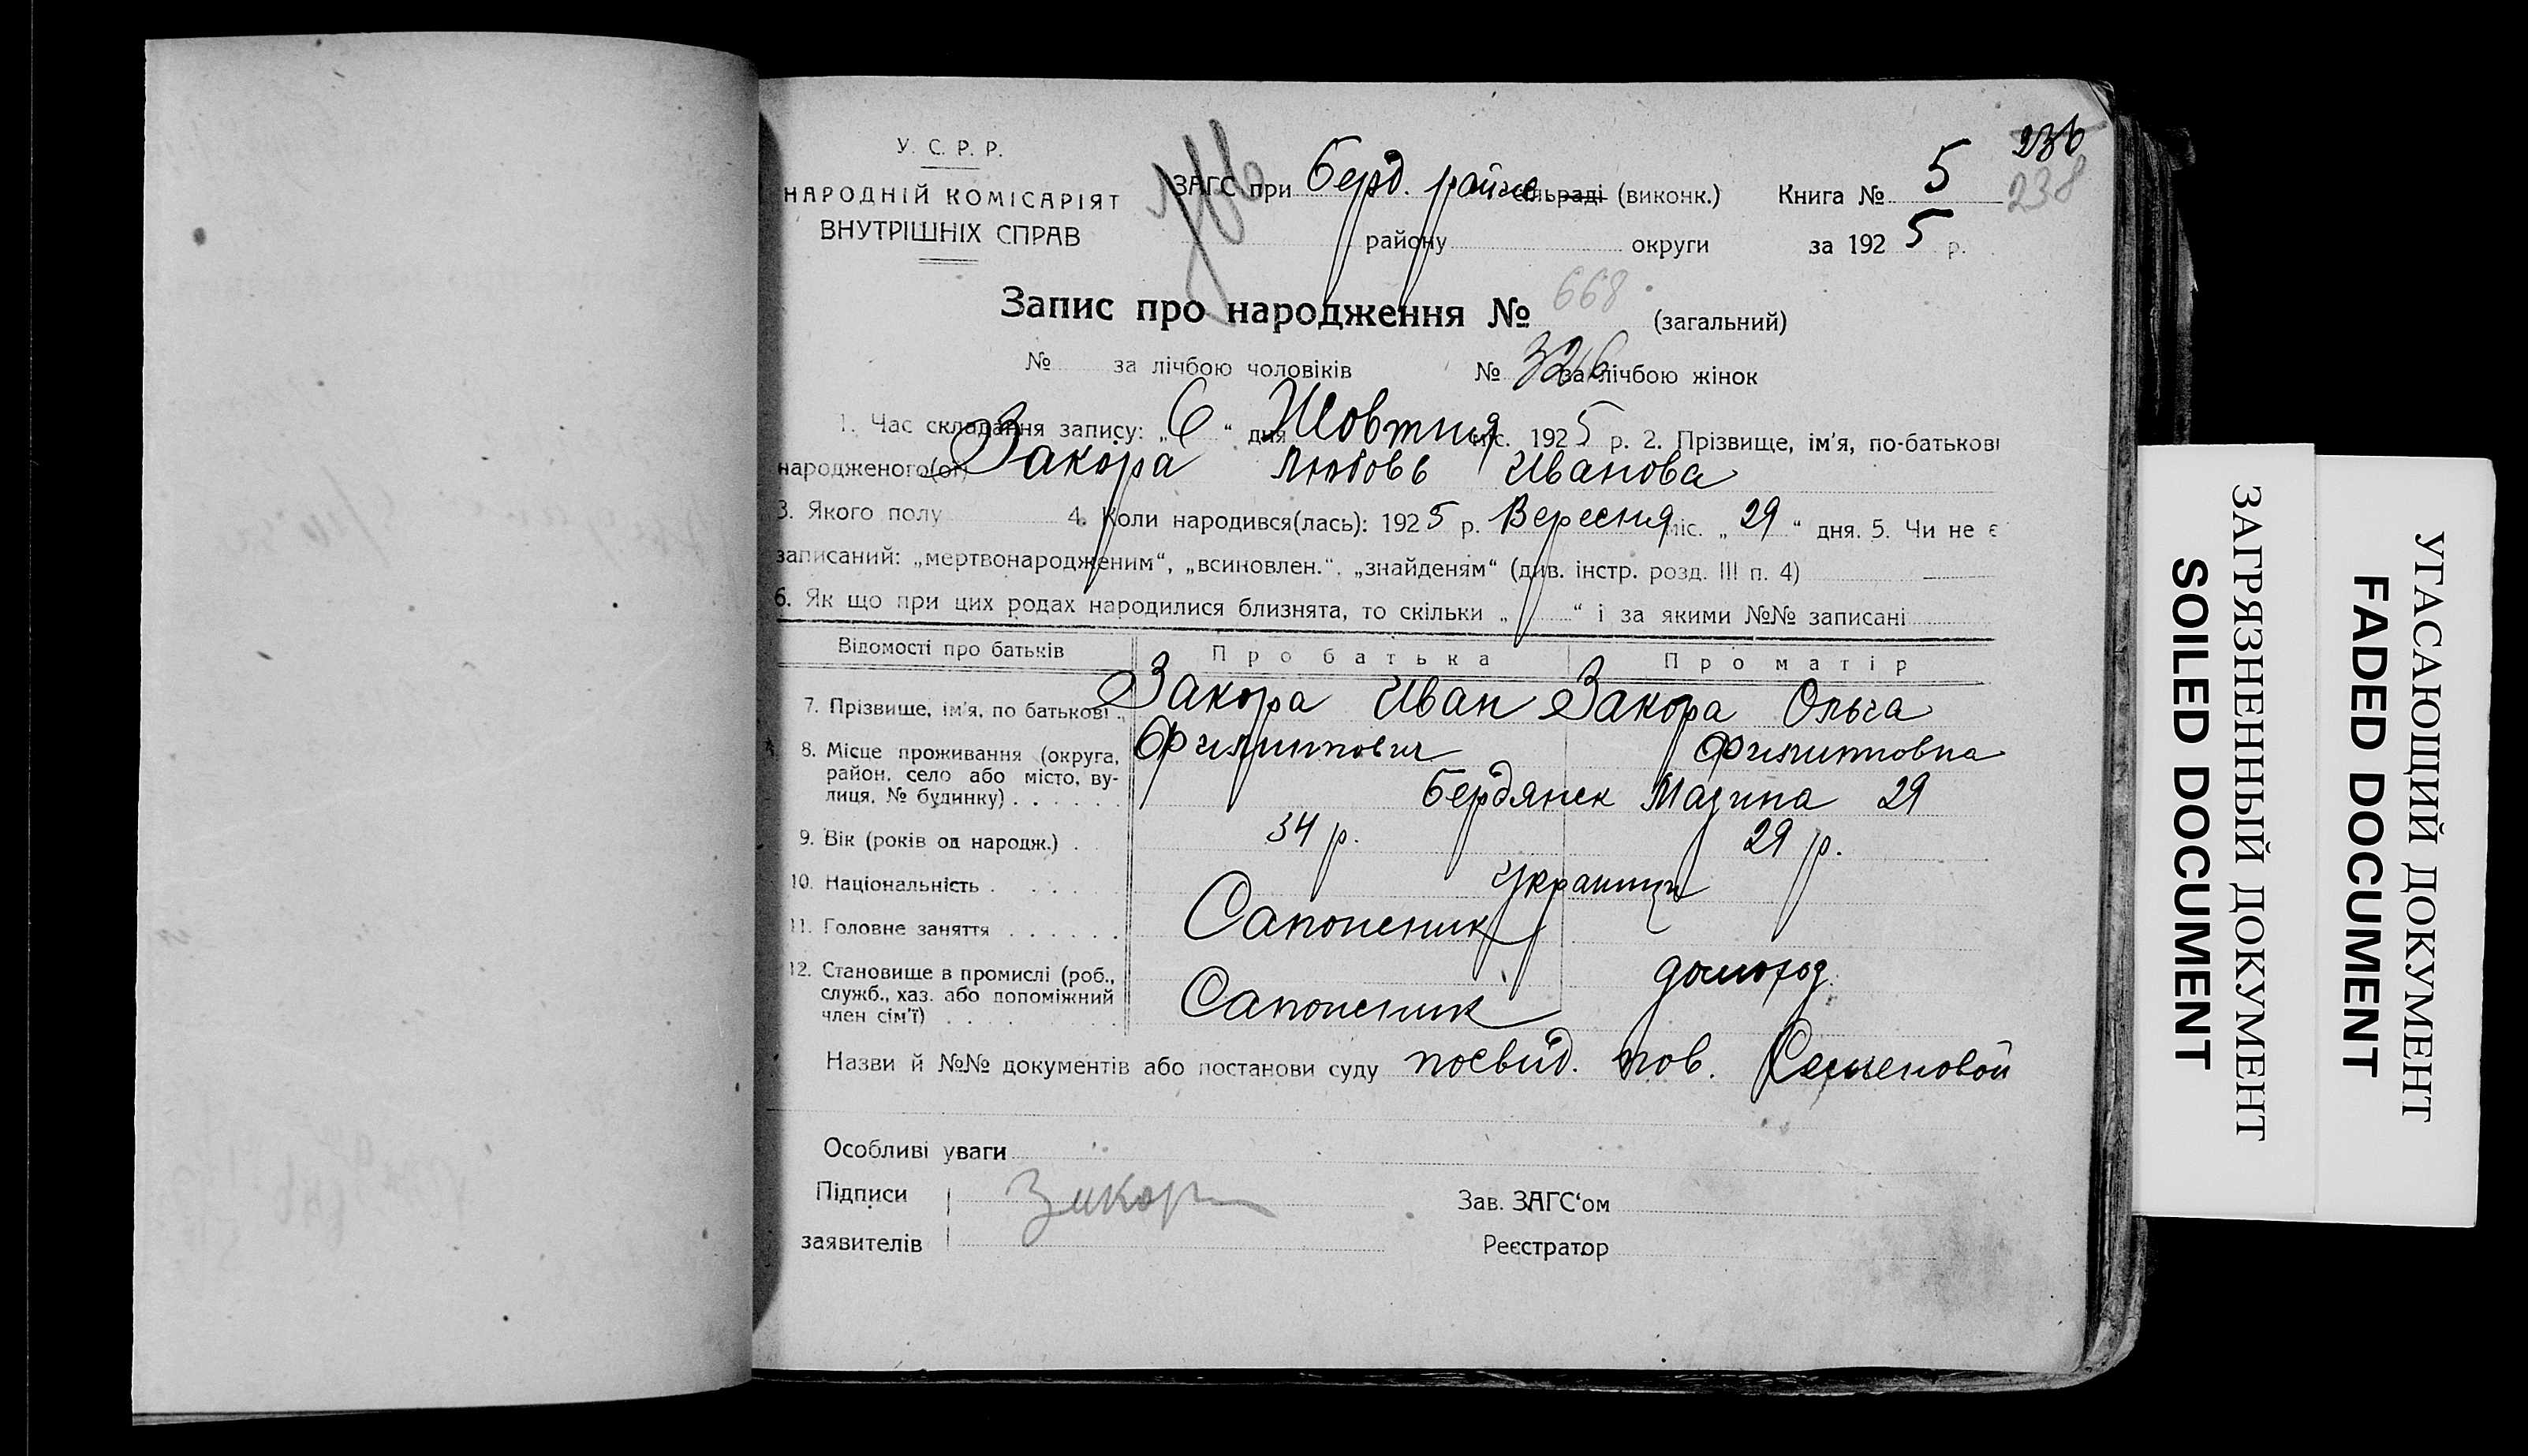 236
238
У. С. Р. Р.
НАРОДНІЙ КОМІСАРІЯТ
ВНУТРІШНІХ СПРАВ
ЗАГС при Берд. райис сільраді (виконк.) Книга № 5
району округи за 1925 р.
Запис про народження № 668 (загальний)
№ за лічбою чоловіків № 326 за лічбою жінок
1. Час складання запису: „6“ дня Жовтня міс. 1925 р. 2. Прізвище, ім'я, по-батькові
народженого(ої) Закора Любовь Иванова
3. Якого полу 4. Коли народився(лась): 1925 р. Вересня міс. „29“ дня. 5. Чи не є
записаний: „мертвонародженим“, „всиновлен.“, „знайденям“ (див. інстр. розд. III п. 4)
6. Як що при цих родах народилися близнята, то скільки „ “ і за якими №№ записані
Відомості про батьків Про батька Про матір
7. Прізвище, ім'я, по батькові Закора Иван Закора Ольга
Филиппович Филипповна
8. Місце проживання (округа,
район, село або місто, ву-
лиця, № будинку) Бердянск Мазина 29
9. Вік (років од народж.) 34 р. 29 р.
10. Національність Украинци
11. Головне заняття Сапожник
12. Становище в промислі (роб.,
служб., хаз. або допоміжний
член сім'ї) Сапожник домогод.
Назви й №№ документів або постанови суду посвід. пов. Семеновой
Особливі уваги
Підписи Закора Зав. ЗАГС'ом
заявителів Реєстратор
ЗАГРЯЗНЕННЫЙ ДОКУМЕНТ
SOILED DOCUMENT
УГАСАЮЩИЙ ДОКУМЕНТ
FADED DOCUMENT